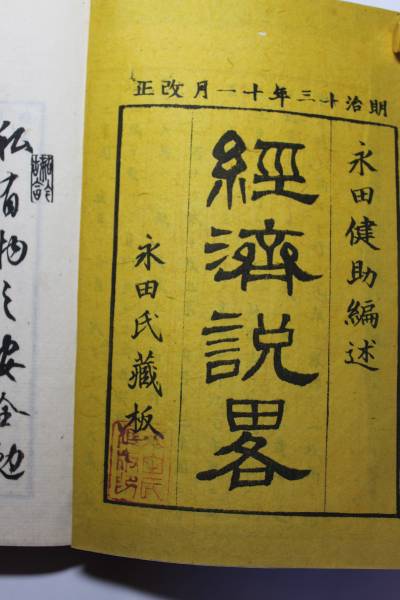 明治十三年十一月改正
永田健助編述
經濟説畧
永田氏藏板
私有物之安全勉